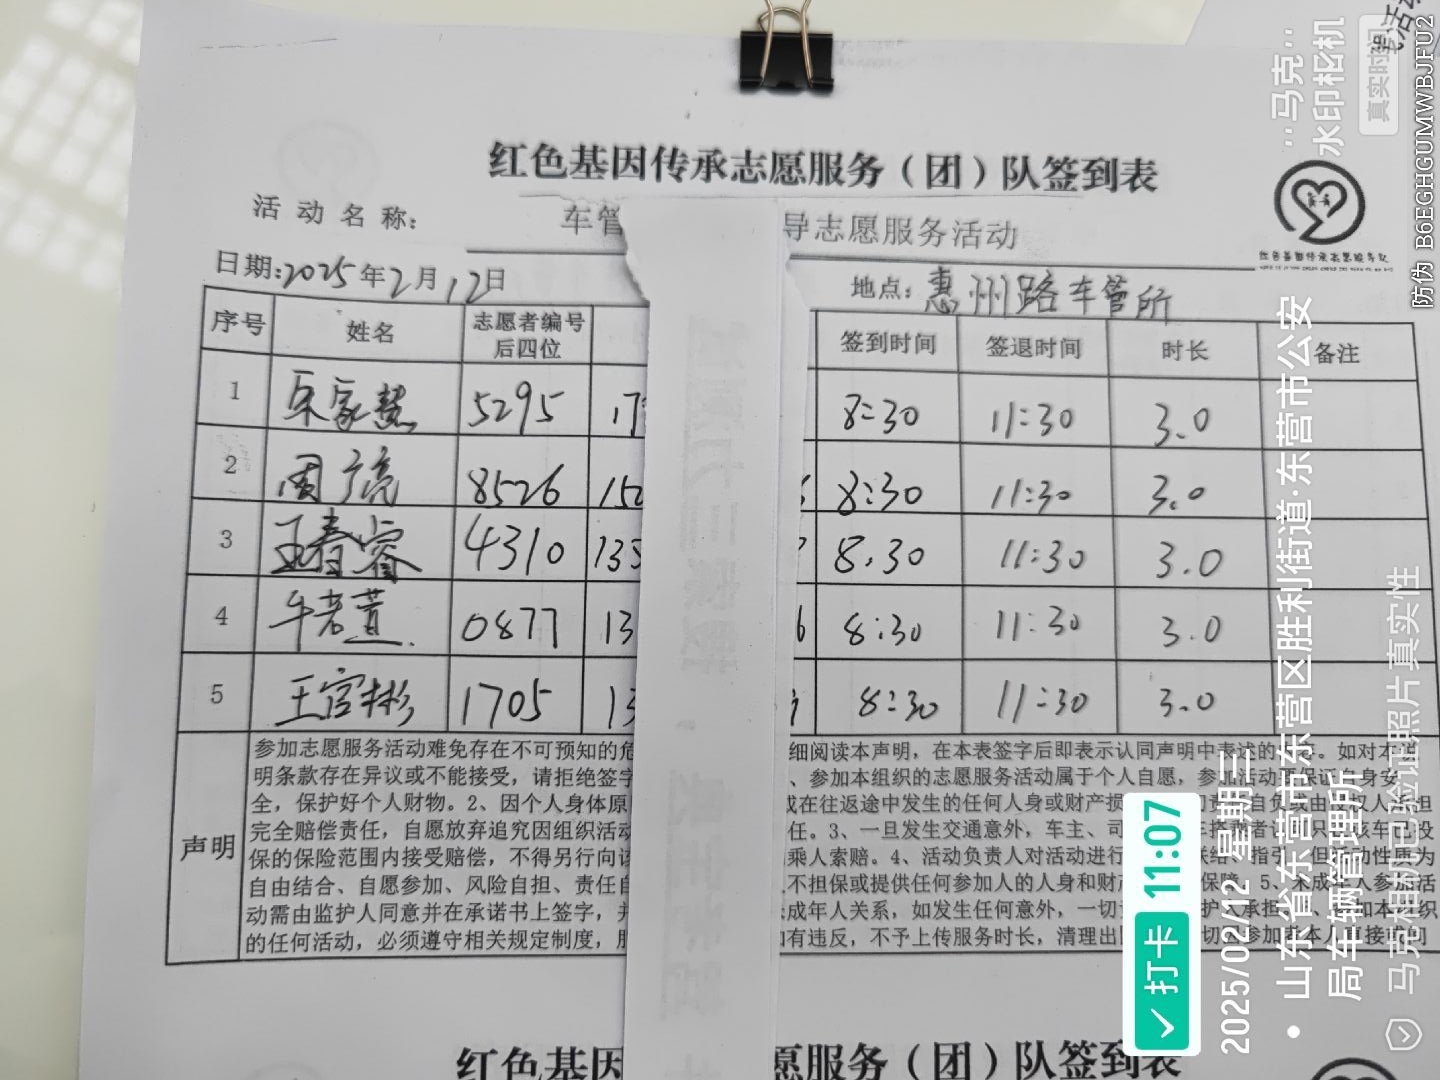 红色基因传承志愿服务（团）队签到表
活动名称： 车管 导志愿服务活动
日期:2025年2月12日 地点：惠州路车管所
序号 姓名 志愿者编号后四位 签到时间 签退时间 时长 备注
1 家慧 5295 17 8:30 11:30 3.0
2 周 8526 150 8:30 11:30 3.0
3 王春睿 4310 135 8:30 11:30 3.0
4 牛 0877 13 6 8:30 11:30 3.0
5 王官彬 1705 13 8:30 11:30 3.0
声明
参加志愿服务活动难免存在不可预知的危 细阅读本声明，在本表签字后即表示认同声明中表述的 。如对本
明条款存在异议或不能接受，请拒绝签字 、参加本组织的志愿服务活动属于个人自愿，参加活动 保证 身安
全，保护好个人财物。2、因个人身体原 或在往返途中发生的任何人身或财产损 自负或由 权人承担
完全赔偿责任，自愿放弃追究因组织活动 任。3、一旦发生交通意外，车主、司 只 该车已投
保的保险范围内接受赔偿，不得另行向该 乘人索赔。4、活动负责人对活动进行 联络、指 但活动性质为
自由结合、自愿参加、风险自担、责任自 不担保或提供任何参加人的人身和财 保障。5、未成年人参加活
动需由监护人同意并在承诺书上签字，并 成年人关系，如发生任何意外，一切 护人承担 加本组织
的任何活动，必须遵守相关规定制度， 有违反，不予上传服务时长，清理出 切 参加 本人直接或间
红色基因 愿服务（团）队签到表
打卡 11:07
2025/02/12 星期三
山东省东营市东营区胜利街道·东营市公安
局车辆管理所
马克相机已验证照片真实性
马克
水印相机
真实时间
防伪 B6EGHGUMWBJFU2